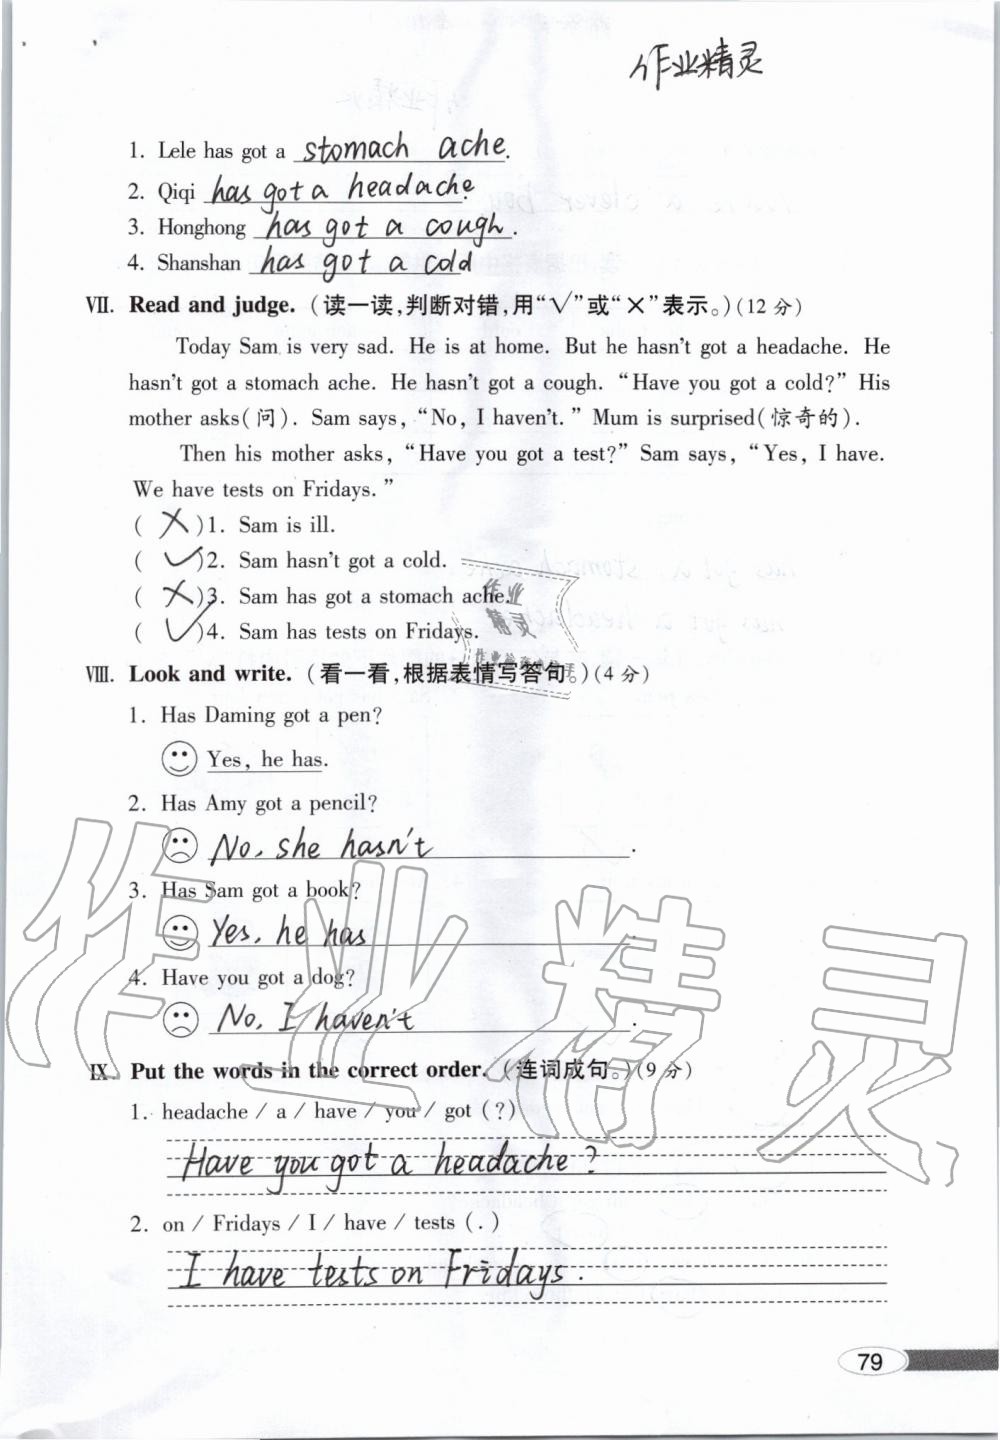 作业精灵
1. Lele has got a stomach ache.
2. Qiqi has got a headache
3. Honghong has got a cough.
4. Shanshan has got a cold
Ⅶ. Read and judge.(读一读,判断对错,用“√”或“×”表示。)(12分)
Today Sam is very sad. He is at home. But he hasn't got a headache. He
hasn't got a stomach ache. He hasn't got a cough. “Have you got a cold?” His
mother asks(问). Sam says, “No, I haven't.” Mum is surprised(惊奇的).
Then his mother asks, “Have you got a test?” Sam says, “Yes, I have.
We have tests on Fridays.”
( × )1. Sam is ill.
( ✓ )2. Sam hasn't got a cold.
( × )3. Sam has got a stomach ache.
( ✓ )4. Sam has tests on Fridays.
作业
精灵
Ⅷ. Look and write.(看一看,根据表情写答句。)(4分)
1. Has Daming got a pen?
Yes, he has.
2. Has Amy got a pencil?
No, she hasn't.
3. Has Sam got a book?
Yes, he has.
4. Have you got a dog?
No, I haven't.
作业精灵
Ⅸ. Put the words in the correct order.(连词成句。)(9分)
1. headache / a / have / you / got (?)
Have you got a headache?
2. on / Fridays / I / have / tests (.)
I have tests on Fridays.
79